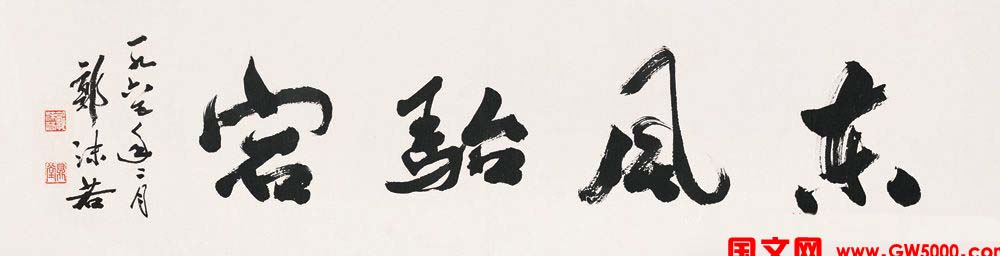 东风骀宕
一九六五年二月
郭沫若
国文网 www.GW5000.com